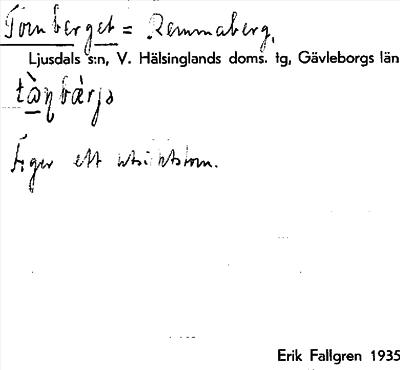 Tornberget = Remmaberg,
Ljusdals s:n, V. Hälsinglands doms. tg, Gävleborgs län
tὼɳbὰrjə
Äger ett utsiktstorn.
Erik Fallgren 1935